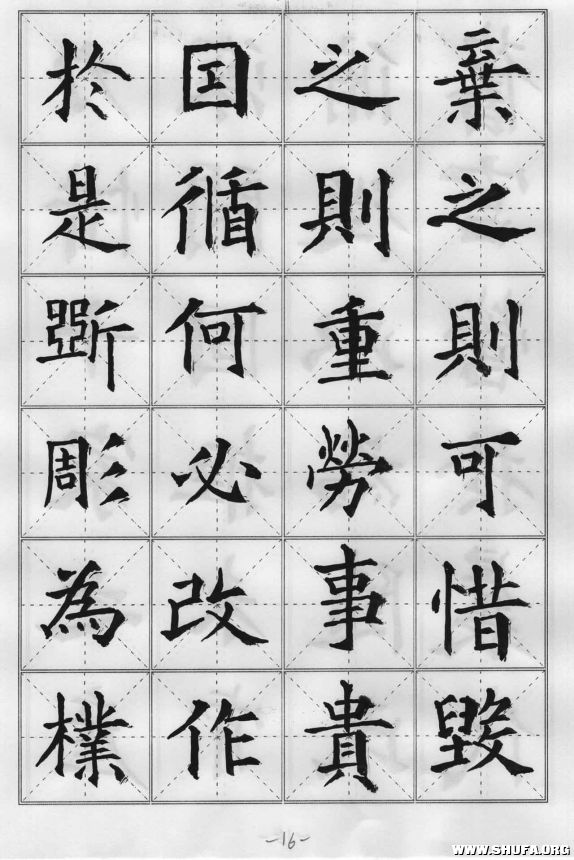 棄之則可惜毀
之則重勞事貴
因循何必改作
於是斲彫為樸
-16-
WWW.SHUFA.ORG